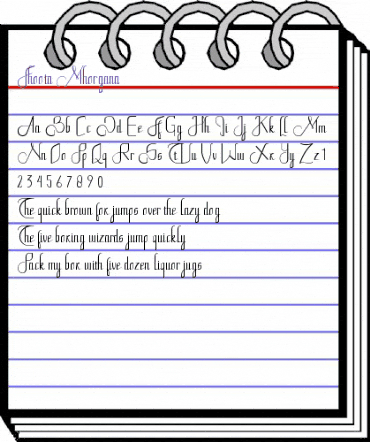 Fhoota Mhorgana
Aa Bb Cc Dd Ee Ff Gg Hh Ii Jj Kk Ll Mm
Nn Oo Pp Qq Rr Ss Tt Uu Vv Ww Xx Yy Zz 1
2 3 4 5 6 7 8 9 0
The quick brown fox jumps over the lazy dog
The five boxing wizards jump quickly
Pack my box with five dozen liquor jugs